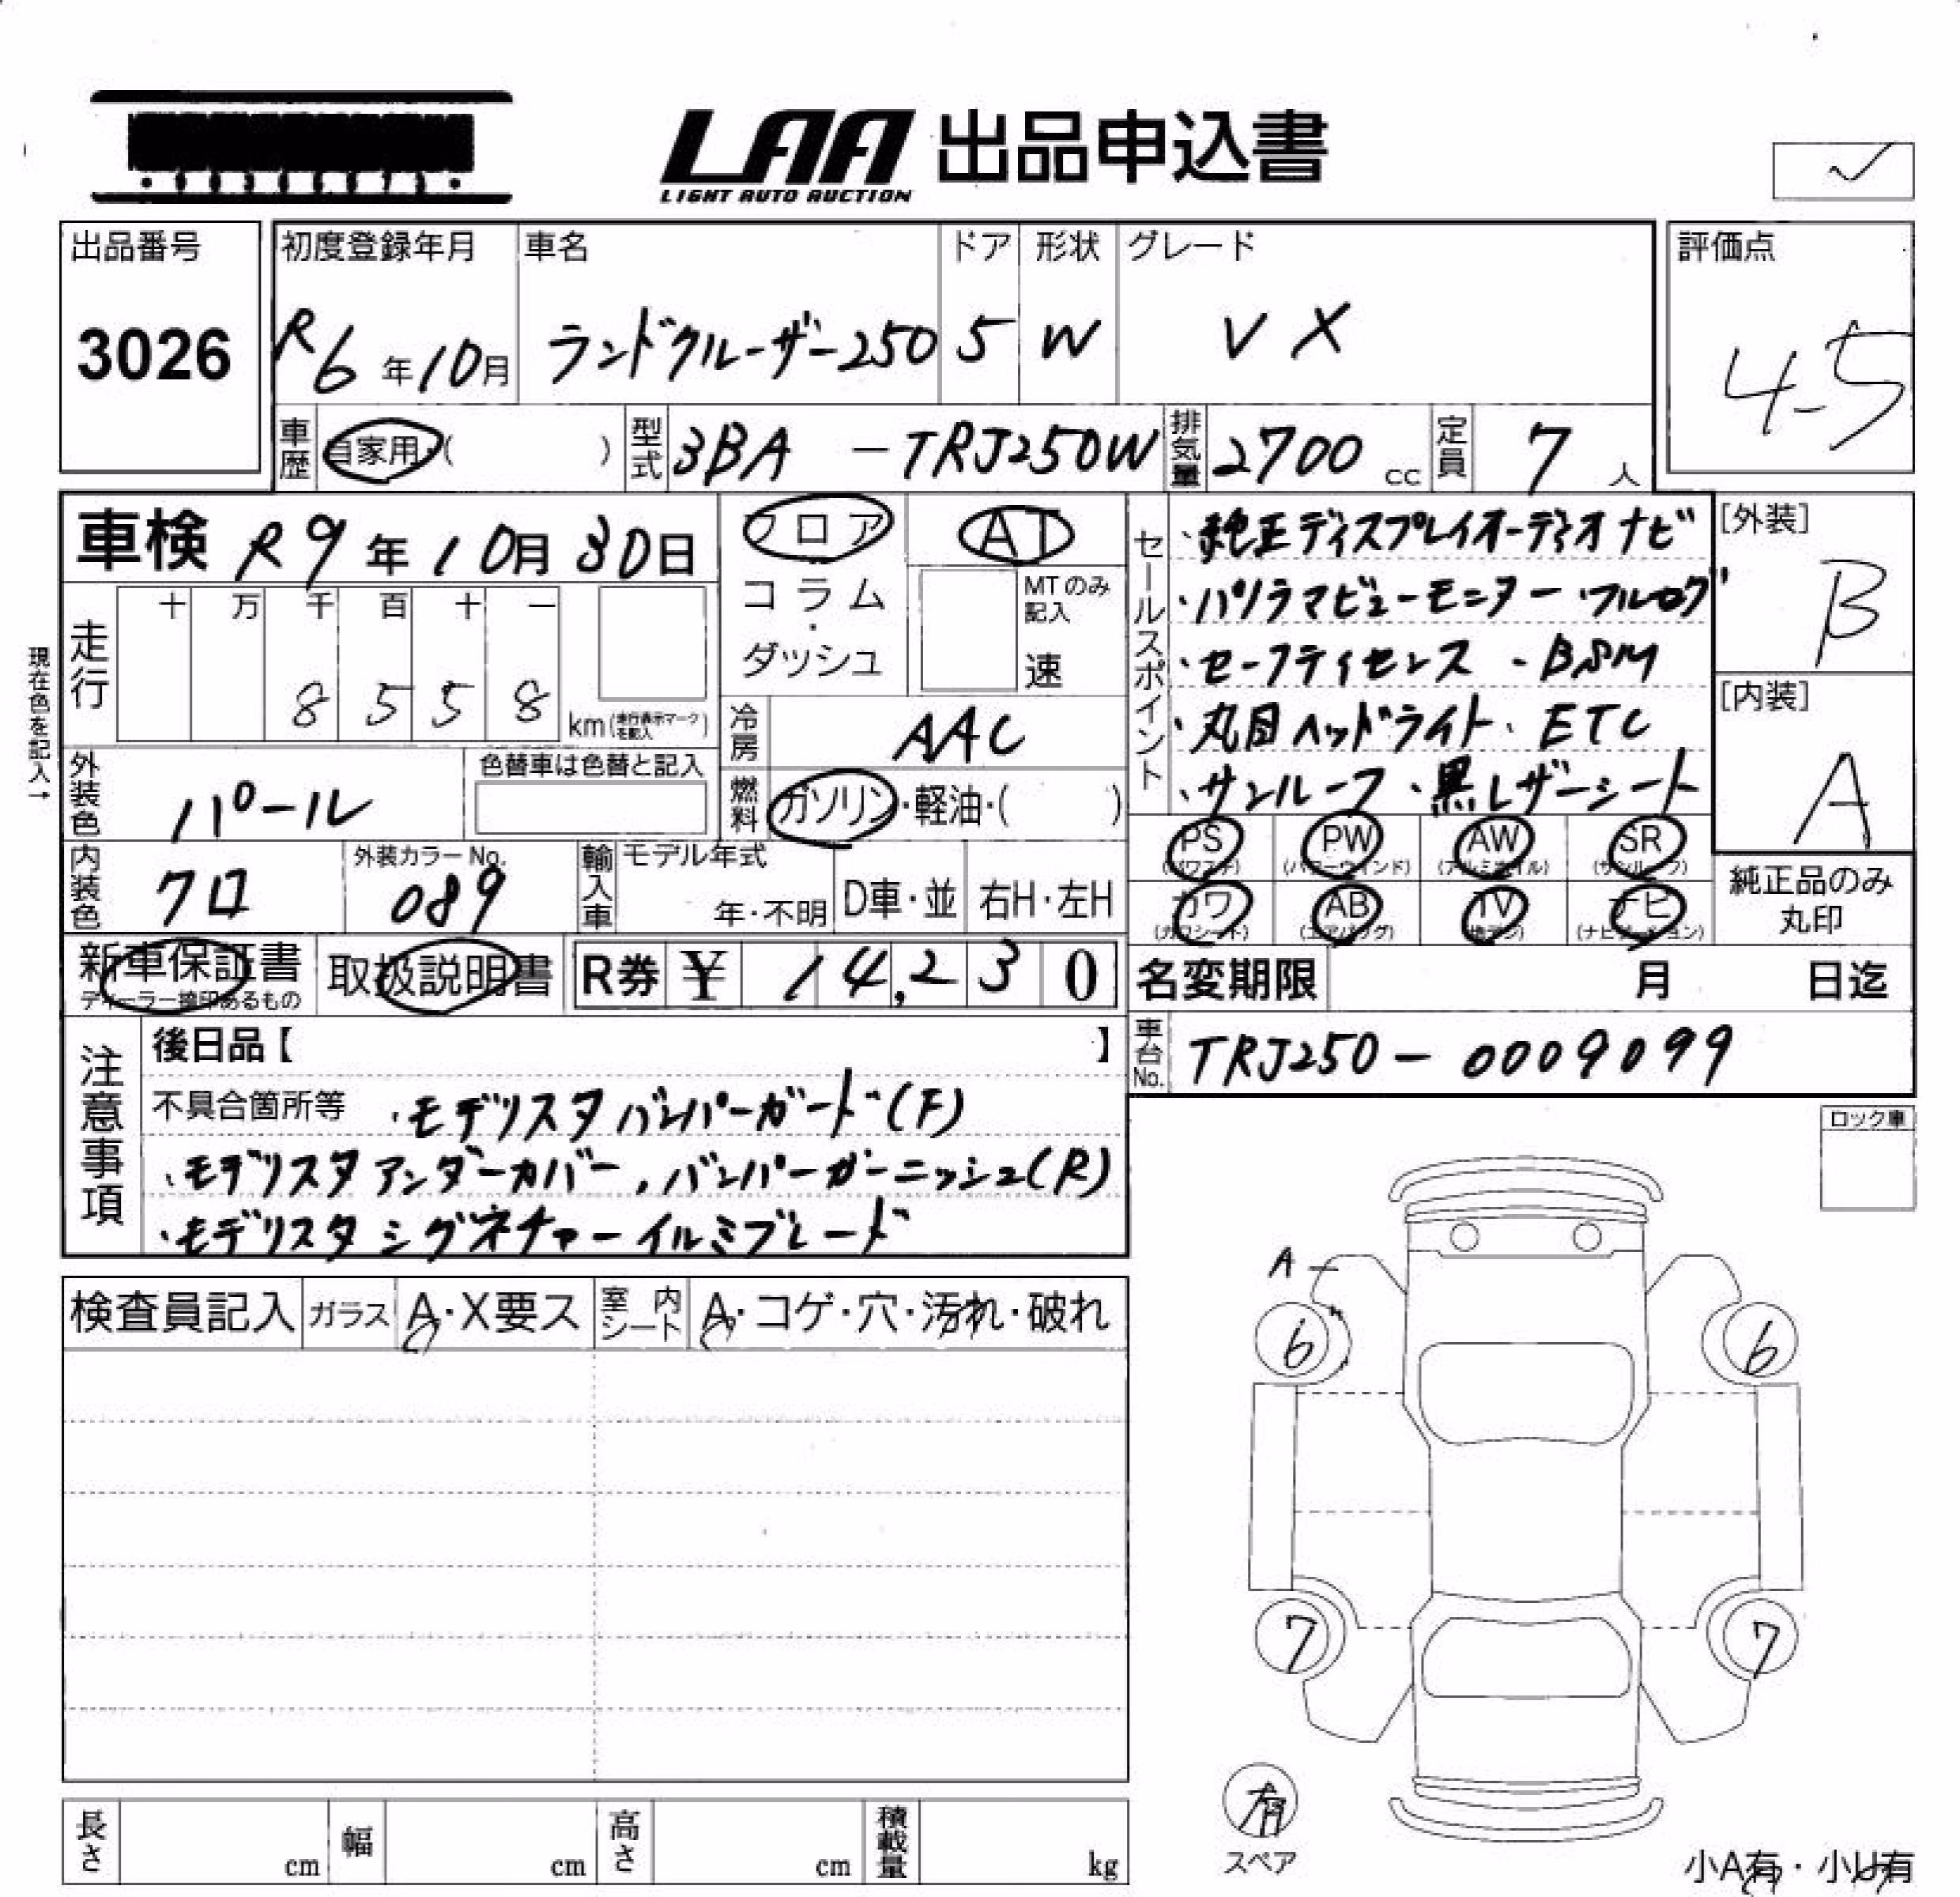 LAA 出品申込書
LIGHT AUTO AUCTION
✓
出品番号
3026
初度登録年月
R6年10月
車名
ランドクルーザー250
ドア
5
形状
W
グレード
VX
評価点
4.5
車歴
自家用・( )
型式
3BA -TRJ250W
排気量
2700 cc
定員
7 人
車検 R9年10月30日
現在色を記入→
走行
十 万 千 百 十 一
8 5 5 8
km(走行表示マークを記入)
フロア
コラム
・
ダッシュ
AT
MTのみ記入
速
冷房
AAC
燃料
ガソリン・軽油・( )
外装色
パール
色替車は色替と記入
内装色
クロ
外装カラーNo.
089
輸入車
モデル年式
年・不明
D車・並
右H・左H
セールスポイント
・純正ディスプレイオーディオナビ
・パノラマビューモニター ・フルセグ
・セーフティセンス ・BSM
・丸目ヘッドライト・ETC
・サンルーフ・黒レザーシート
[外装]
B
[内装]
A
PS
(パワステ)
PW
(パワーウィンド)
AW
(アルミホイル)
SR
(サンルーフ)
カワ
(カワシート)
AB
(エアバッグ)
TV
(地デジ)
ナビ
(ナビゲーション)
純正品のみ
丸印
新車保証書
ディーラー捺印あるもの
取扱説明書
R券 ¥ 14,230
名変期限 月 日迄
車台No.
TRJ250-0009099
注意事項
後日品【 】
不具合箇所等 ・モデリスタバンパーガード(F)
・モデリスタアンダーカバー,バンパーガーニッシュ(R)
・モデリスタシグネチャーイルミブレード
ロック車
検査員記入
ガラス
A・X要ス
室内シート
A・コゲ・穴・汚れ・破れ
A
6
6
7
7
有
スペア
小A有・小U有
長さ cm
幅 cm
高さ cm
積載量 kg